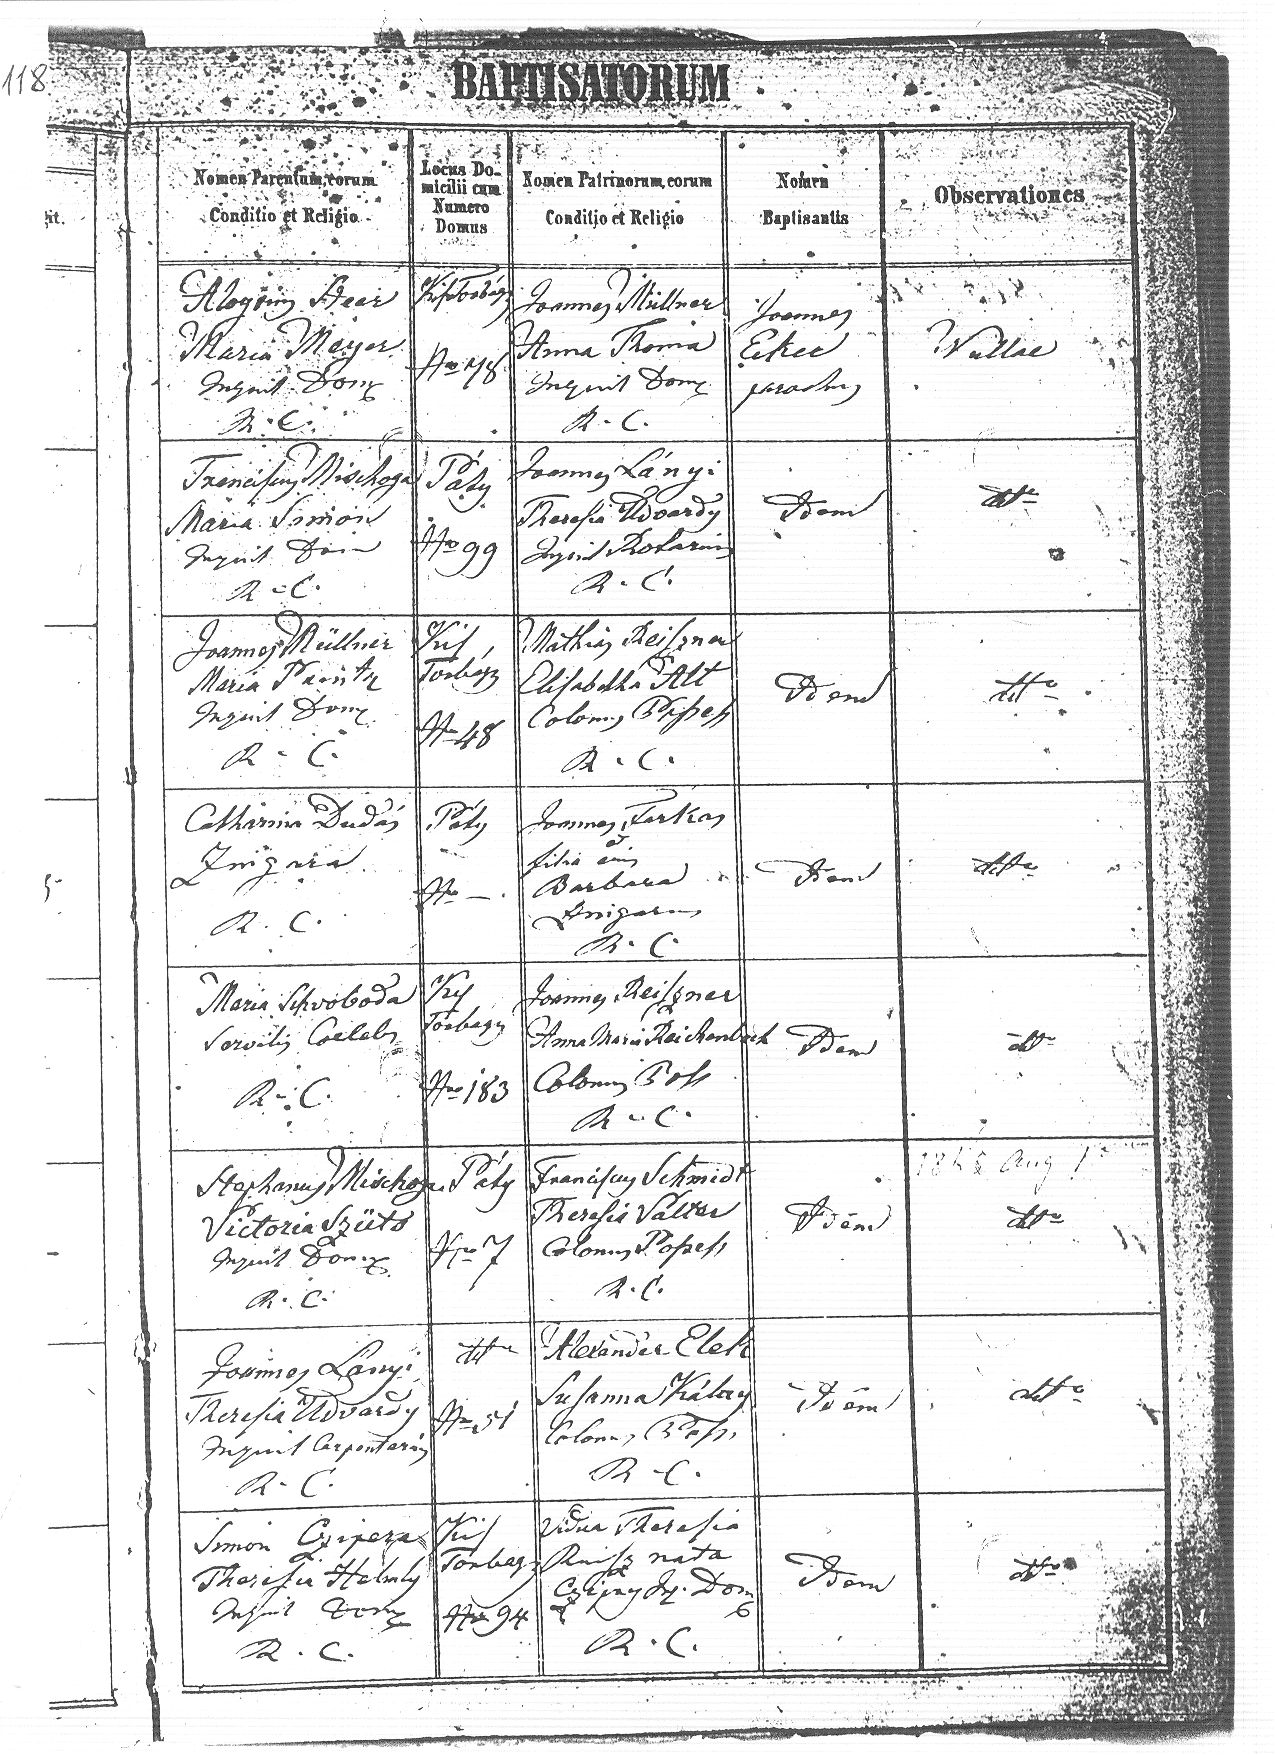 118
BAPTISATORUM
Nomen Parentum, eorum
Conditio et Religio
Locus Do-
micilii cum
Numero
Domus
Nomen Patrinorum, eorum
Conditio et Religio
Nomen
Baptisantis
Observationes
Aloysius
Maria Meyer
Inquil. Dom
R. C.
Kis Torbágy
Nro 78
Joannes Müllner
Anna Thoma
Inquil Dom
R. C.
Joannes
parochus
Nullae
Franciscus Mischoga
Maria Simon
Inquil
R. C.
Páty
Nro 99
Joannes Lányi
Theresia Udvardy
Inquil
R. C.
Idem
dtto
Joannes Müllner
Maria
Inquil Dom
R. C.
Kis
Torbágy
Nro 48
Mathias Reiszner
Elisabetha Alt
Colonus Possess
R. C.
Idem
dtto
Catharina Dudás
Zingara
R. C.
Páty
Nro —
Joannes Farkas
filia
Barbara
R. C.
Idem
dtto
Maria Schvoboda
Servilis Coelebs
R. C.
Kis
Torbagy
Nro 183
Joannes Reiszner
Anna Maria Reichenbach
Colonus Poss
R. C.
Idem
dtto
Stephanus Mischoga
Victoria Szüts
Inquil Dom
R. C.
Páty
Nro 7
Franciscus Schmidt
Theresia Valter
Colonus Possess
R. C.
Idem
Aug
dtto
Joannes Lányi
Theresia Udvardy
Inquil Carpentarius
R. C.
dtto
Nro 51
Alexander Elek
Susanna
Colonus Poss
R. C.
Idem
dtto
Simon
Theresia
Inquil Dom
R. C.
Kis
Torbagy
Nro 94
Vidua Theresia
nata
Dom
R. C.
Idem
dtto